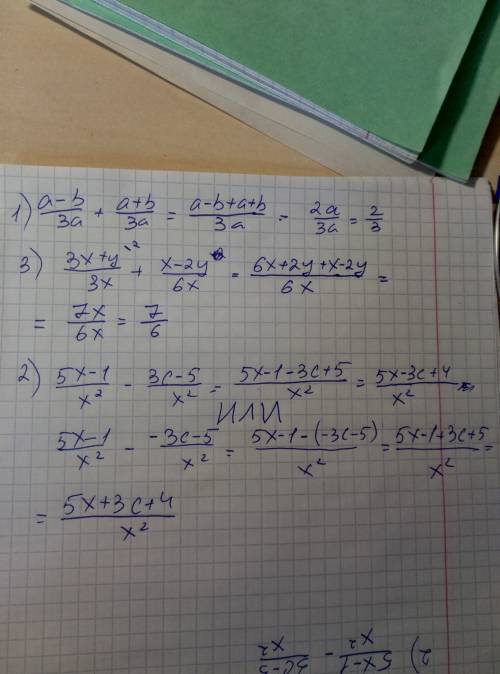 1) (a-b)/3a + (a+b)/3a = (a-b+a+b)/3a = 2a/3a = 2/3
3) (3x+y)/3x ^2 + (x-2y)/6x = (6x+2y+x-2y)/6x =
= 7x/6x = 7/6
2) (5x-1)/x² - (3c-5)/x² = (5x-1-3c+5)/x² = (5x-3c+4)/x²
ИЛИ
(5x-1)/x² - (-3c-5)/x² = (5x-1-(-3c-5))/x² = (5x-1+3c+5)/x² =
= (5x+3c+4)/x²
2) (5x-1)/x² -